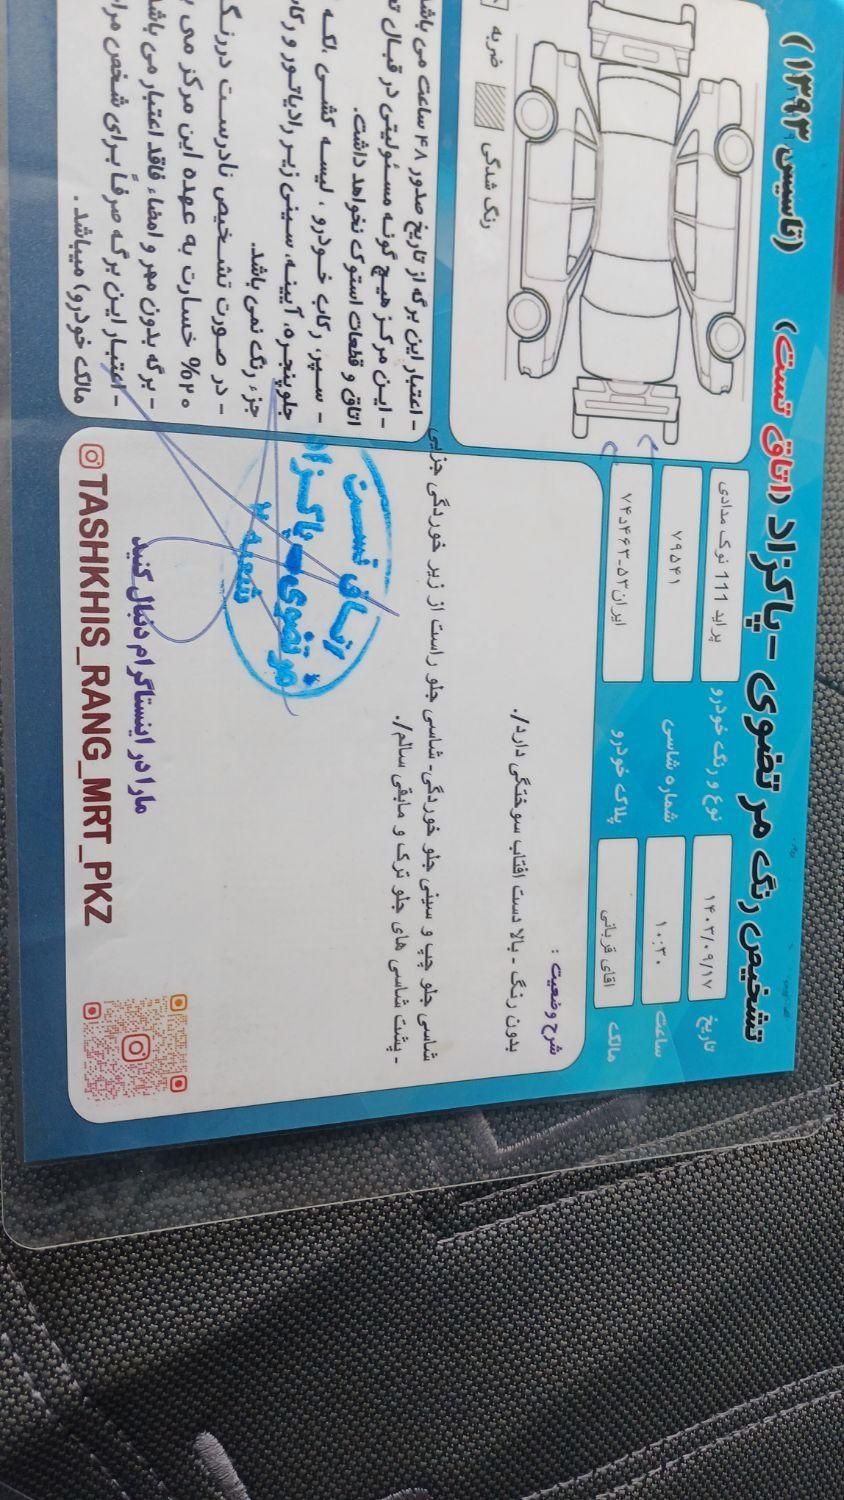 تشخیص رنگ مرتضوی - پاکزاد (اتاق تست) (تاسیس ۱۳۹۳)
تاریخ ۱۴۰۳/۰۹/۱۷
نوع و رنگ خودرو پراید 111 نوک مدادی
ساعت ۱۰:۳۰
شماره شاسی ۷۹۵۴۱
مالک اقای قربانی
پلاک خودرو ایران۵۳-۴۶۳د۷۴
ضربه
رنگ شدگی
شرح وضعیت :
بدون رنگ - بالا دست افتاب سوختگی دارد/.
شاسی جلو چپ و سینی جلو خوردگی- شاسی جلو راست از زیر خوردگی جزیی
- پشت شاسی های جلو ترک و مابقی سالم/.
- اعتبار این برگه از تاریخ صدور ۴۸ ساعت می باشد
- این مرکز هیچ گونه مسئولیتی در قبال
اتاق و قطعات استوک نخواهد داشت.
- سپر، رکاب خودرو ، لیسه کشی ،لکه
جلوپنجره، آیینه، سینی زیر رادیاتور و
جزء رنگ نمی باشد.
- در صورت تشخیص نادرست
۲۰% خسارت به عهده این مرکز می
- برگه بدون مهر و امضاء فاقد اعتبار می
- اعتبار این برگه صرفاً برای شخص
مالک خودرو) میباشد .
اتاق تست
مرتضوی-پاکزاد
شعبه ۲
مارا در اینستاگرام دنبال کنید
TASHKHIS_RANG_MRT_PKZ